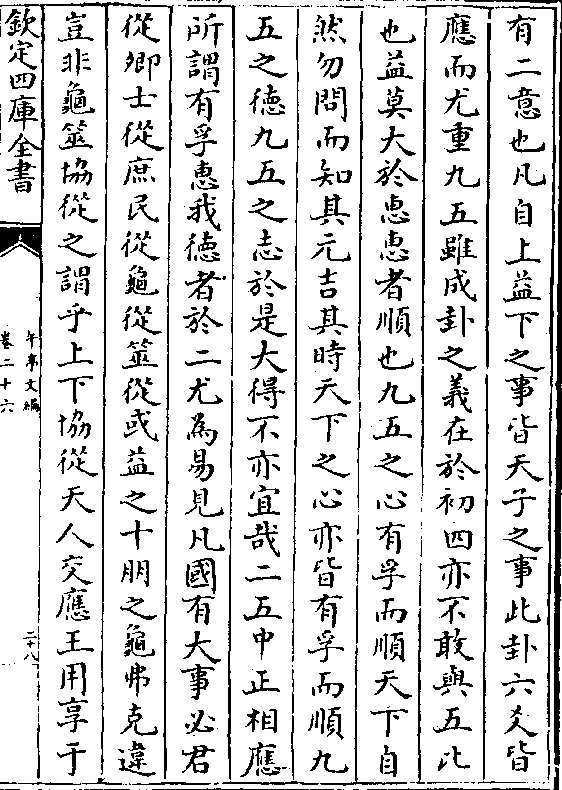 有二意也凡自上益下之事皆天子之事此卦六爻皆
應而尤重九五雖成卦之義在於初四亦不敢與五比
也益莫大於惠惠者順也九五之心有孚而順天下自
然勿問而知其元吉其時天下之心亦皆有孚而順九
五之德九五之志於是大得不亦宜哉二五中正相應
所謂有孚惠我德者於二尤為易見凡國有大事必君
從卿士從庶民從龜從筮從或益之十朋之龜弗克違
豈非龜筮協從之謂乎上下協從天人交應王用享于
欽定四庫全書
午亭文編
卷二十六
二十八